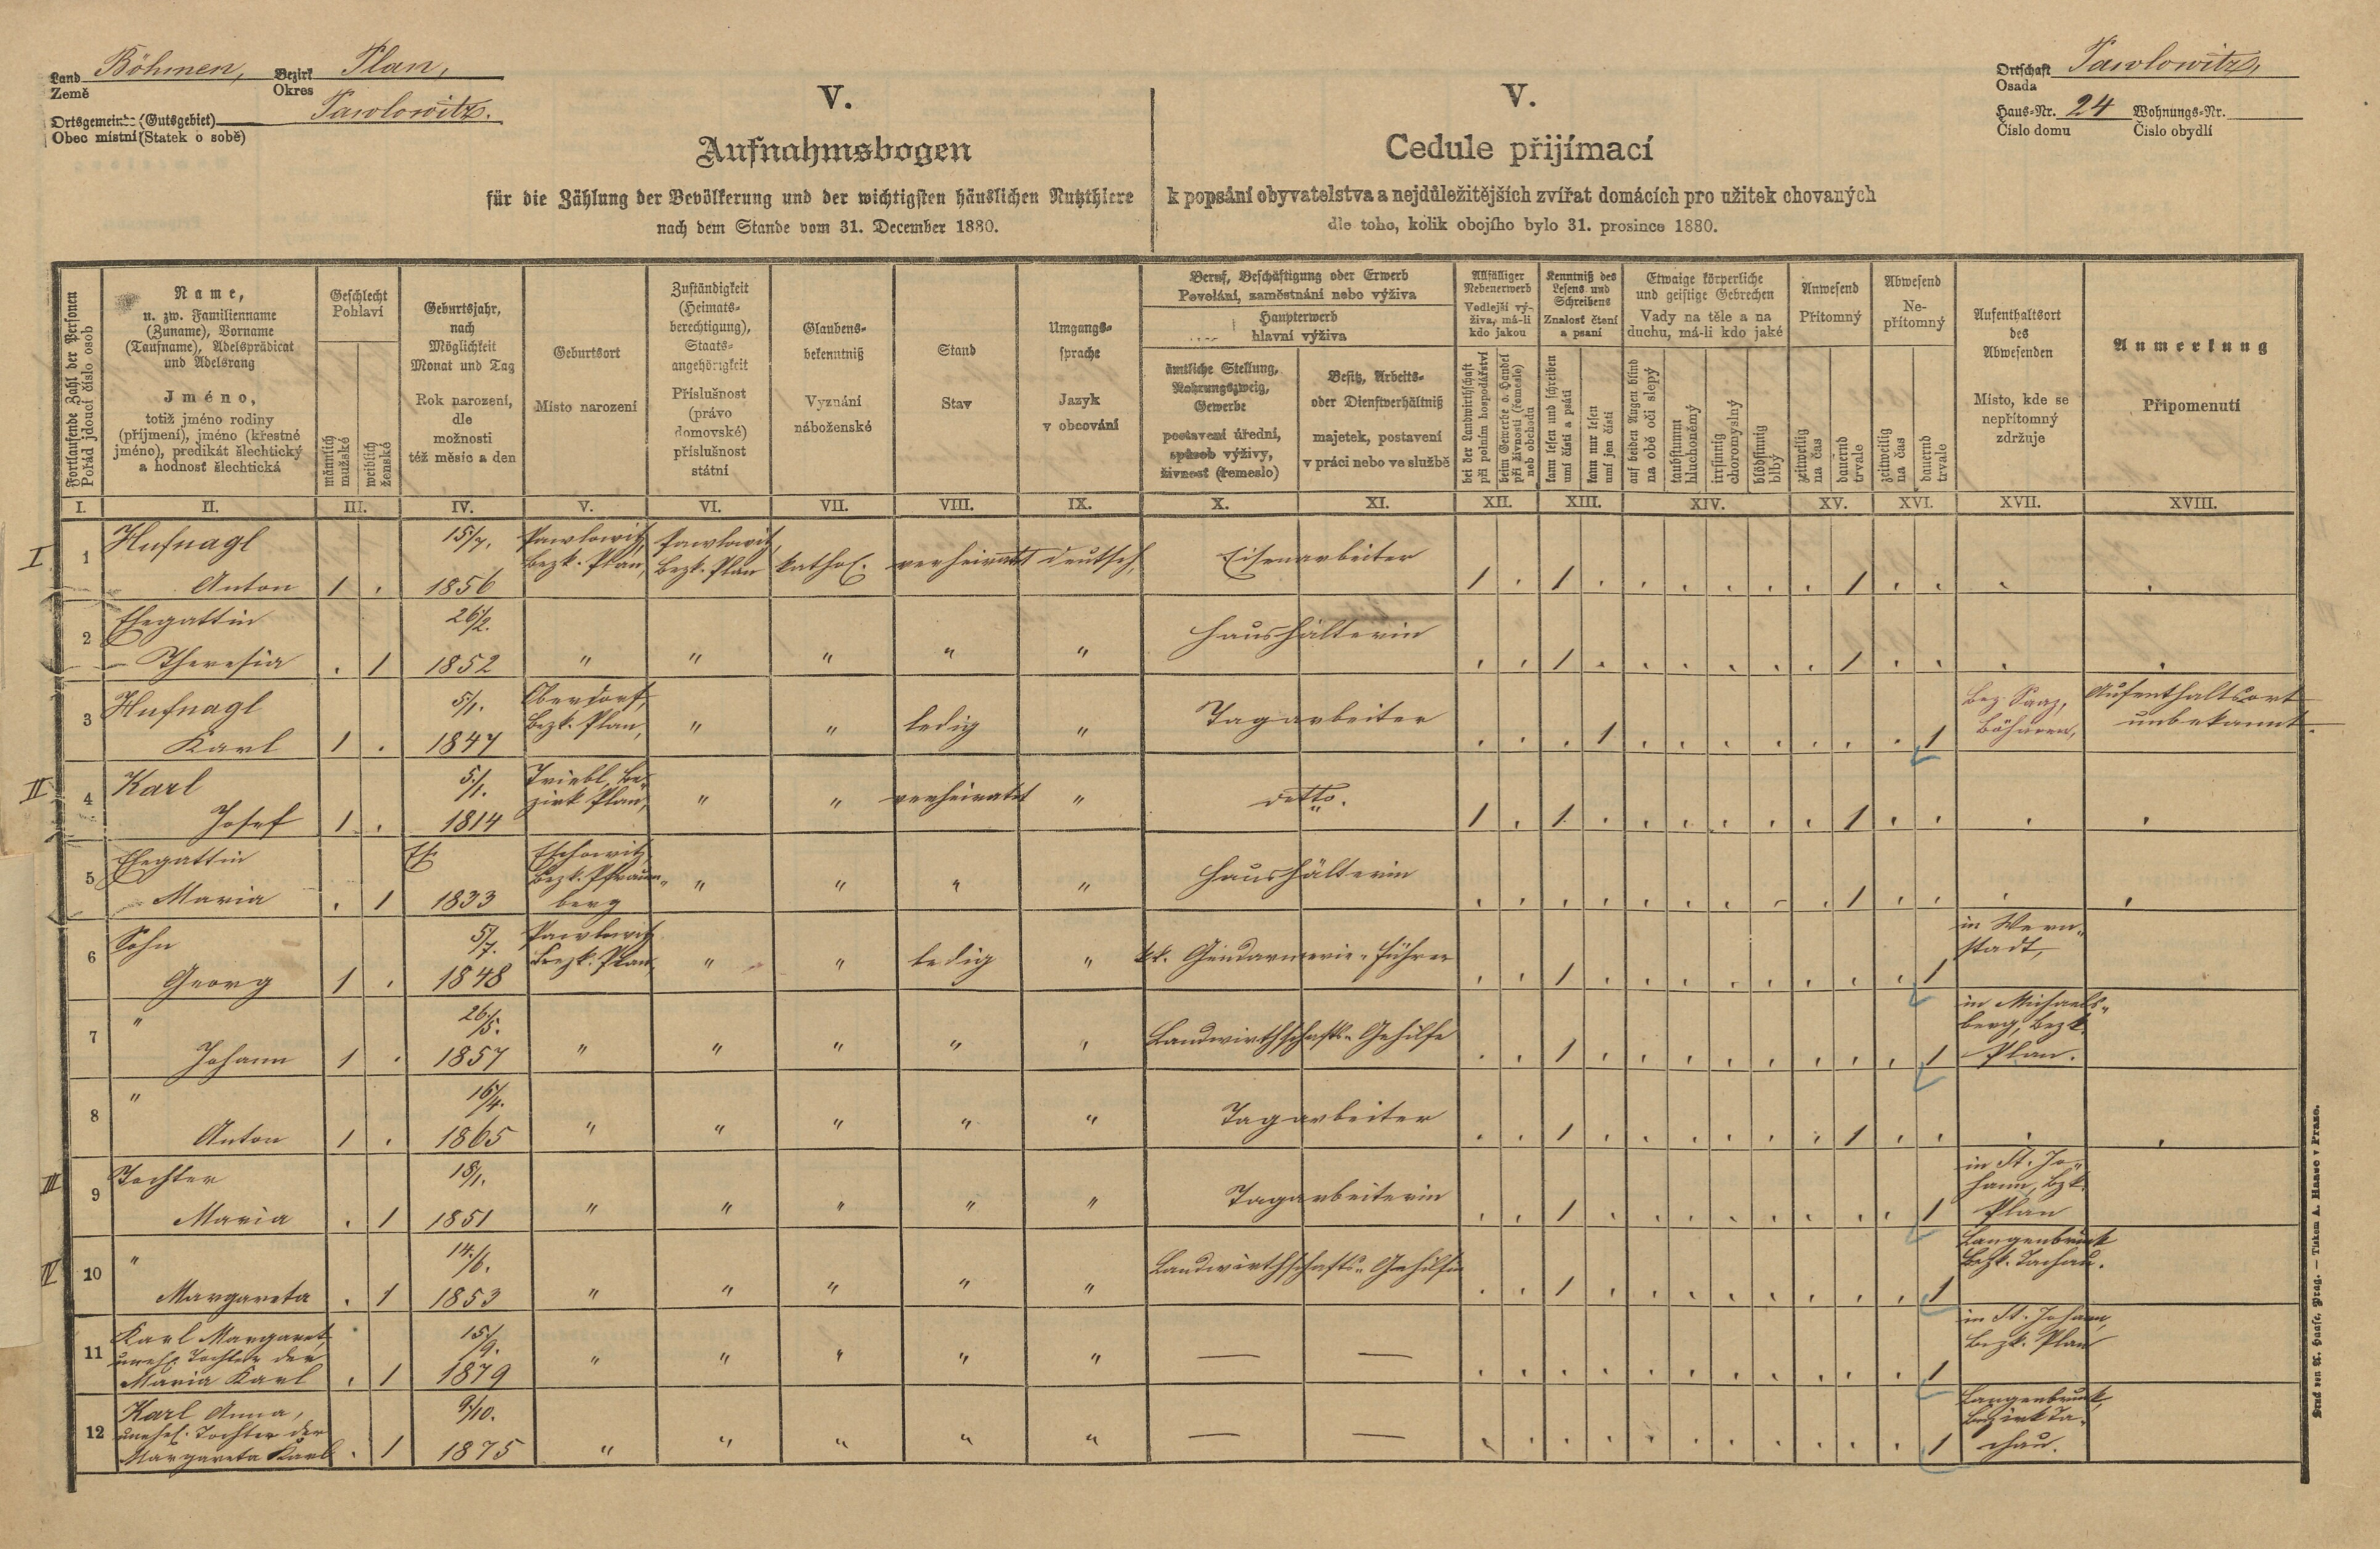 Land Böhmen, Bezirk Plan,
Země Okres
Ortsgemeinde (Gutsgebiet) Pawlowitz.
Obec místní (Statek o sobě)
V.
Aufnahmsbogen
für die Zählung der Bevölkerung und der wichtigsten häuslichen Nutzthiere
nach dem Stande vom 31. December 1880.
V.
Cedule přijímací
k popsání obyvatelstva a nejdůležitějších zvířat domácích pro užitek chovaných
dle toho, kolik obojího bylo 31. prosince 1880.
Ortschaft Pawlowitz,
Osada
Haus-Nr. 24 Wohnungs-Nr.
Číslo domu Číslo obydlí
Fortlaufende Zahl der Personen
Pořád jdoucí číslo osob
Name,
u. zw. Familienname
(Zuname), Vorname
(Taufname), Adelsprädicat
und Adelsrang
Jméno,
totiž jméno rodiny
(příjmení), jméno (křestné
jméno), predikát šlechtický
a hodnosť šlechtická
Geschlecht
Pohlaví
männlich
mužské
weiblich
ženské
Geburtsjahr,
nach
Möglichkeit
Monat und Tag
Rok narození,
dle
možnosti
též měsíc a den
Geburtsort
Místo narození
Zuständigkeit
(Heimats-
berechtigung),
Staats-
angehörigkeit
Příslušnost
(právo
domovské)
příslušnost
státní
Glaubens-
bekenntniß
Vyznání
náboženské
Stand
Stav
Umgangs-
sprache
Jazyk
v obcování
Beruf, Beschäftigung oder Erwerb
Povolání, zaměstnání nebo výživa
Haupterwerb
hlavní výživa
ämtliche Stellung,
Nahrungszweig,
Gewerbe
postavení úřední,
spůsob výživy,
živnosť (řemeslo)
Besitz, Arbeits-
oder Dienstverhältniß
majetek, postavení
v práci nebo ve službě
Allfälliger
Nebenerwerb
Vedlejší vý-
živa, má-li
kdo jakou
bei der Landwirthschaft
při polním hospodářství
beim Gewerbe o. Handel
při živnosti (řemeslo)
neb obchodu
Kenntniß des
Lesens und
Schreibens
Znalost čtení
a psaní
kann lesen und schreiben
umí čísti a psáti
kann nur lesen
umí jen čísti
Etwaige körperliche
und geistige Gebrechen
Vady na těle a na
duchu, má-li kdo jaké
auf beiden Augen blind
na obě oči slepý
taubstumm
hluchoněmý
irrsinnig
choromyslný
blödsinnig
blbý
Anwesend
Přítomný
zeitweilig
na čas
dauernd
trvale
Abwesend
Ne-
přítomný
zeitweilig
na čas
dauernd
trvale
Aufenthaltsort
des
Abwesenden
Místo, kde se
nepřítomný
zdržuje
Anmerkung
Připomenutí
I. II. III. IV. V. VI. VII. VIII. IX. X. XI. XII. XIII. XIV. XV. XVI. XVII. XVIII.
I 1 Hufnagl 15/7. Pawlowitz, Pawlowitz,
Bezk. Plan, Bezk. Plan kathol. verheiratet deutsch, Eisenarbeiter
Anton 1 . 1856 1 . 1 . . . . . . 1 . . . .
2 Ehegattin 26/2. Haushälterin
Theresia . 1 1852 " " " " " . . 1 . . . . . . 1 . . . .
3 Hufnagl 5/1. Oberdorf, Bez. Saaz, Aufenthaltsort
Bezk. Plan, " " ledig " Tagarbeiter Böhmen, unbekannt.
Karl 1 . 1847 . . . 1 . . . . . . . 1
II 4 Karl 5/1. Triebl, Be-
zirk Plan, " " verheiratet " detto.
Josef 1 . 1814 1 . 1 . . . . . . 1 . . . .
5 Ehegattin
Bezk. Pfrauen- " " " " Haushälterin
Maria . 1 1833 berg . . . . . . . . . 1 . . . .
6 Sohn 5/7. Pawlowitz in Wern-
Bezk. Plan, " " ledig " k.k. Gendarmerie-Führer stadt,
Georg 1 . 1848 . . 1 . . . . . . . . 1
7 " 26/5. in Michaels-
Landwirthschafts-Gehilfe berg, Bezk.
Johann 1 . 1857 " " " " " . . 1 . . . . . . . . 1 Plan.
8 " 16/4. Tagarbeiter
Anton 1 . 1865 " " " " " . . 1 . . . . . . 1 . . . .
III 9 Tochter 18/1. in St. Jo-
Tagarbeiterin hann, Bzk.
Maria . 1 1851 " " " " " . . 1 . . . . . . . . 1 Plan
IV 10 " 14/6. Langenbruck
Landwirthschafts-Gehilfin Bezk. Tachau.
Margareta . 1 1853 " " " " " . . 1 . . . . . . . . 1
11 Karl Margaret, 15/9. in St. Johann,
unehel. Tochter der " " " " " — — Bezk. Plan
Maria Karl . 1 1879 . . . . . . . . . . . 1
12 Karl Anna, 9/10. Langenbruck,
unehel. Tochter der " " " " " — — Bezirk Ta-
Margareta Karl . 1 1875 . . . . . . . . . . . 1 chau.
Druck von A. Haase, Prag. — Tiskem A. Haase v Praze.